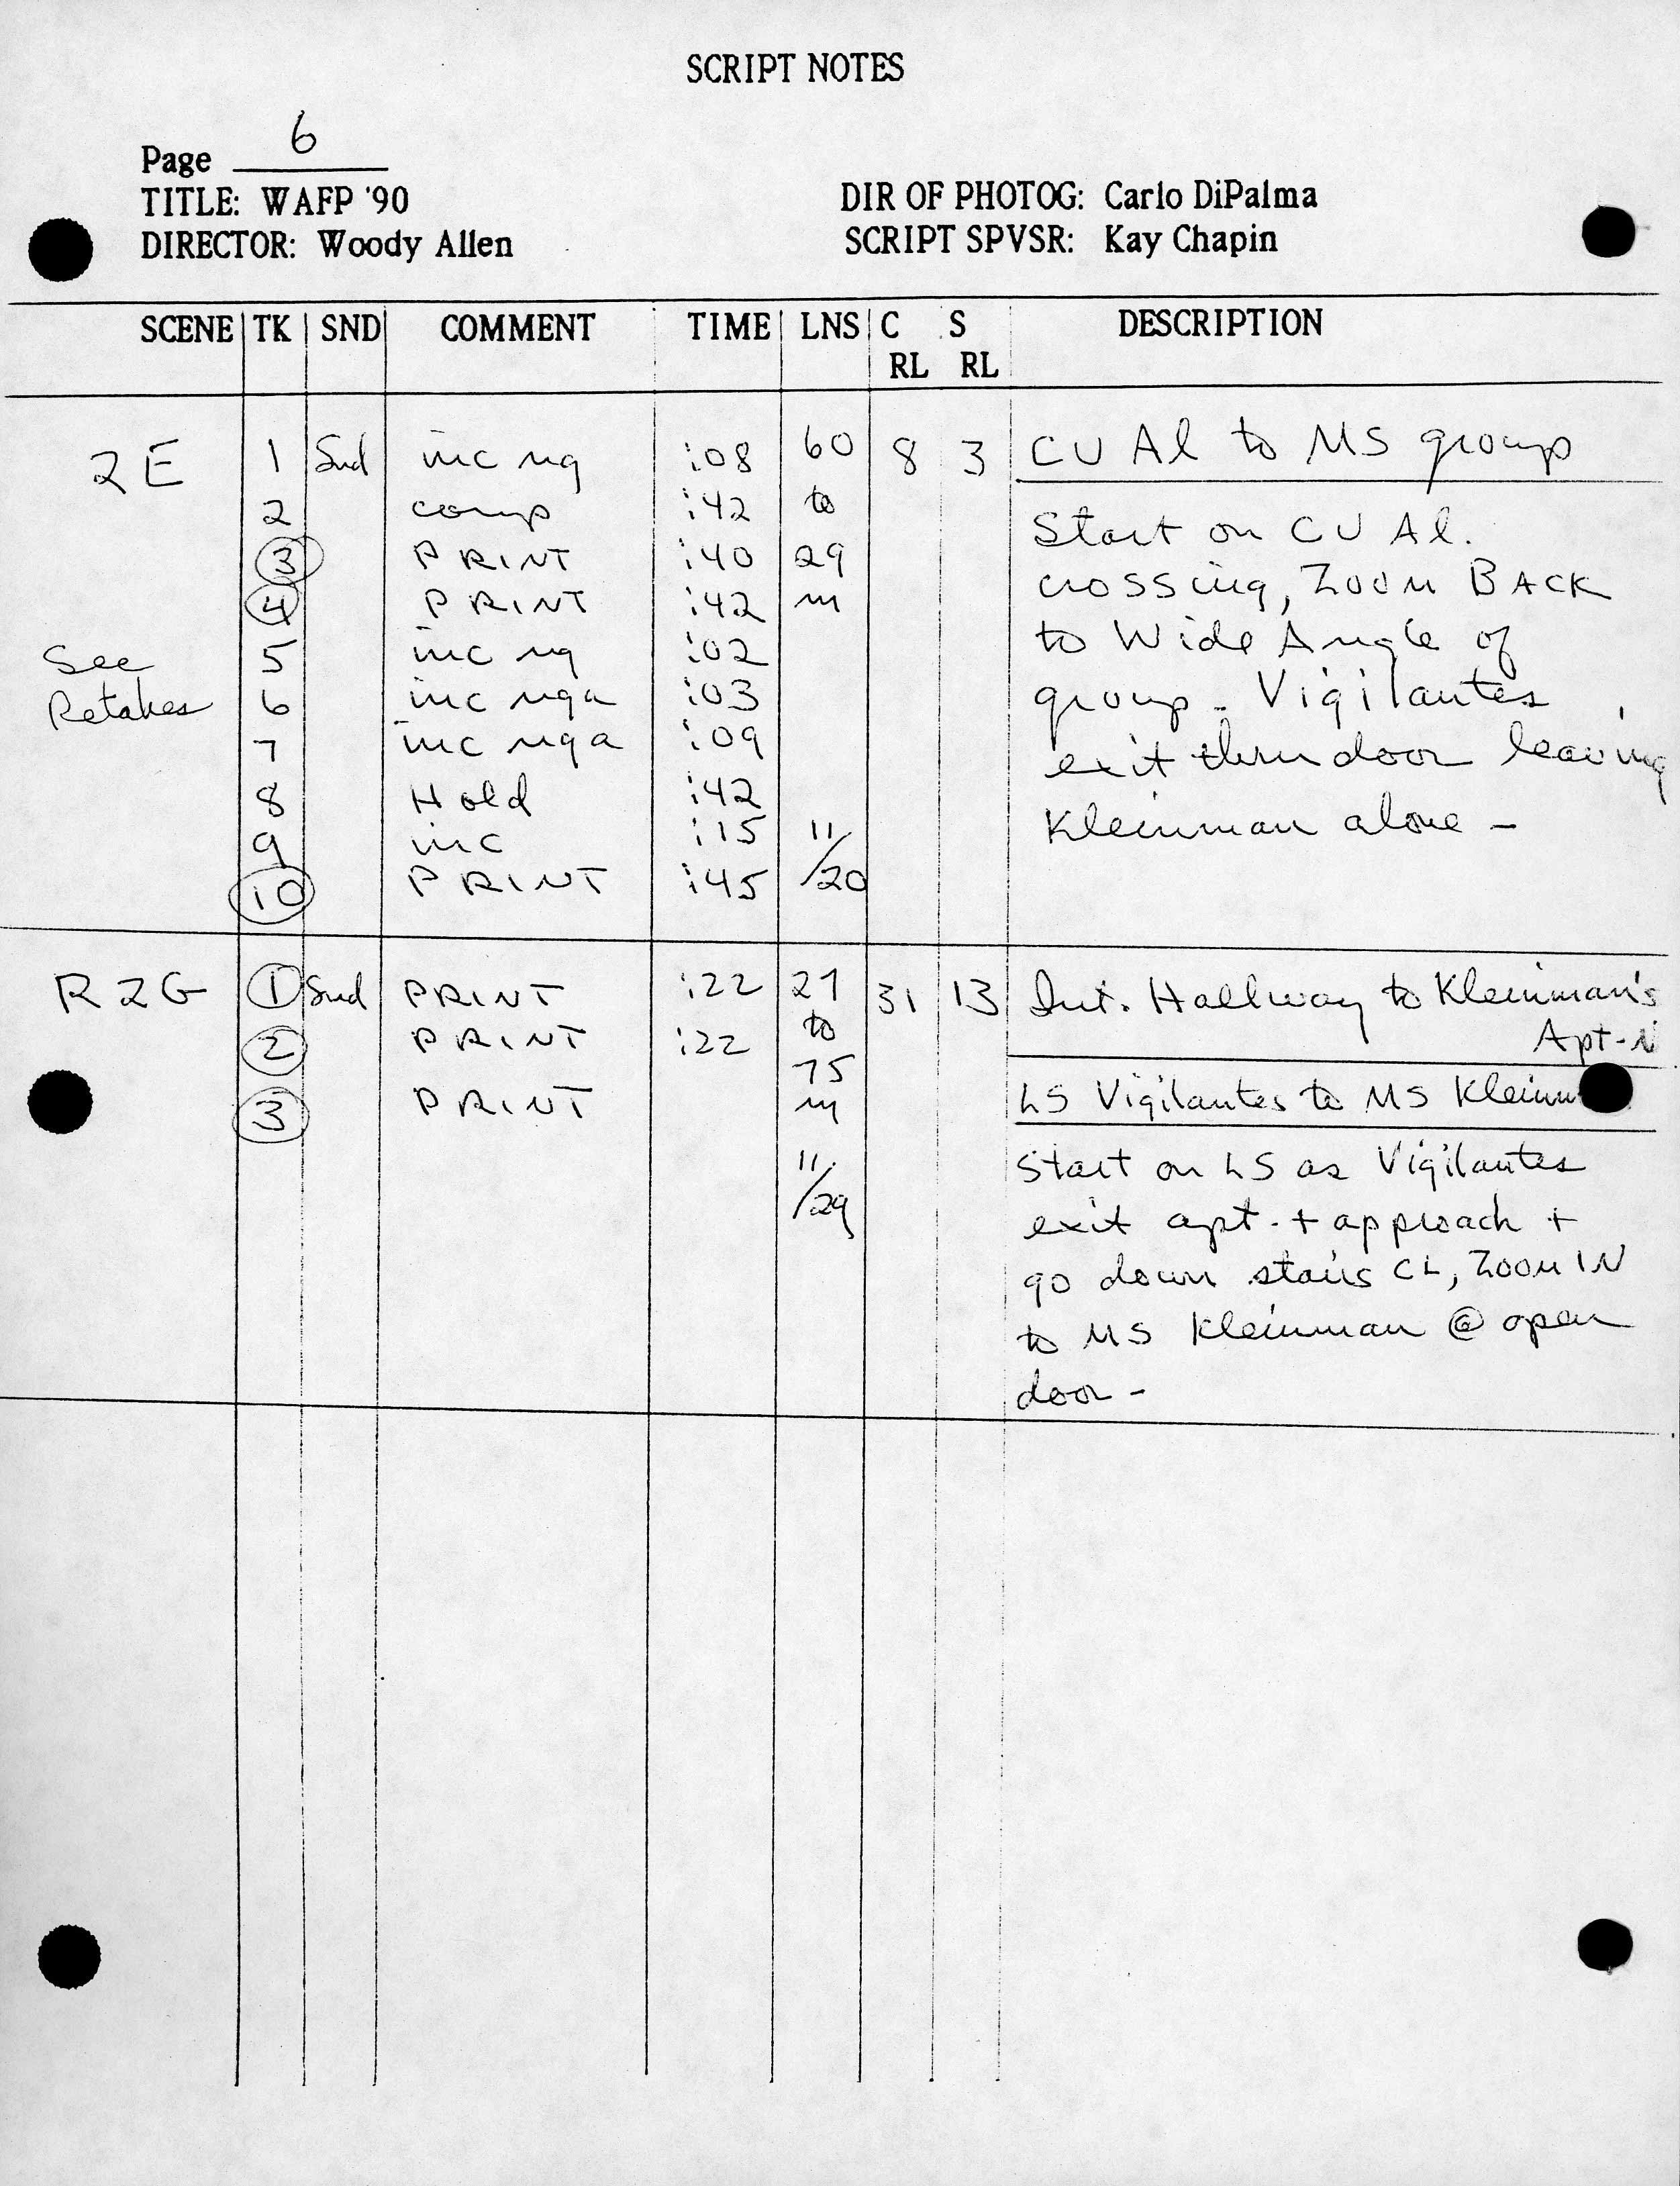 SCRIPT NOTES
Page 6
TITLE: WAFP '90
DIRECTOR: Woody Allen
DIR OF PHOTOG: Carlo DiPalma
SCRIPT SPVSR: Kay Chapin
SCENE TK SND COMMENT TIME LNS C S DESCRIPTION
RL RL
2E 1 Snd inc ng :08 60 8 3 CU Al to MS group
2 comp :42 to Start on CU Al.
3 PRINT :40 29 crossing, ZOOM BACK
4 PRINT :42 m to Wide Angle of
See 5 inc ng :02
Retakes 6 inc nga :03 group - Vigilantes
7 inc nga :09 exit thru door leaving
8 Hold :42 Kleinman alone -
9 inc :15 11/
10 PRINT :45 /20
R2G 1 Snd PRINT :22 27 31 13 Int. Hallway to Kleinman's
2 PRINT :22 to Apt-N
75
3 PRINT m LS Vigilantes to MS Kleinm
11/ Start on LS as Vigilantes
/29 exit apt. + approach +
go down stairs CL, ZOOM IN
to MS Kleinman @ open
door -